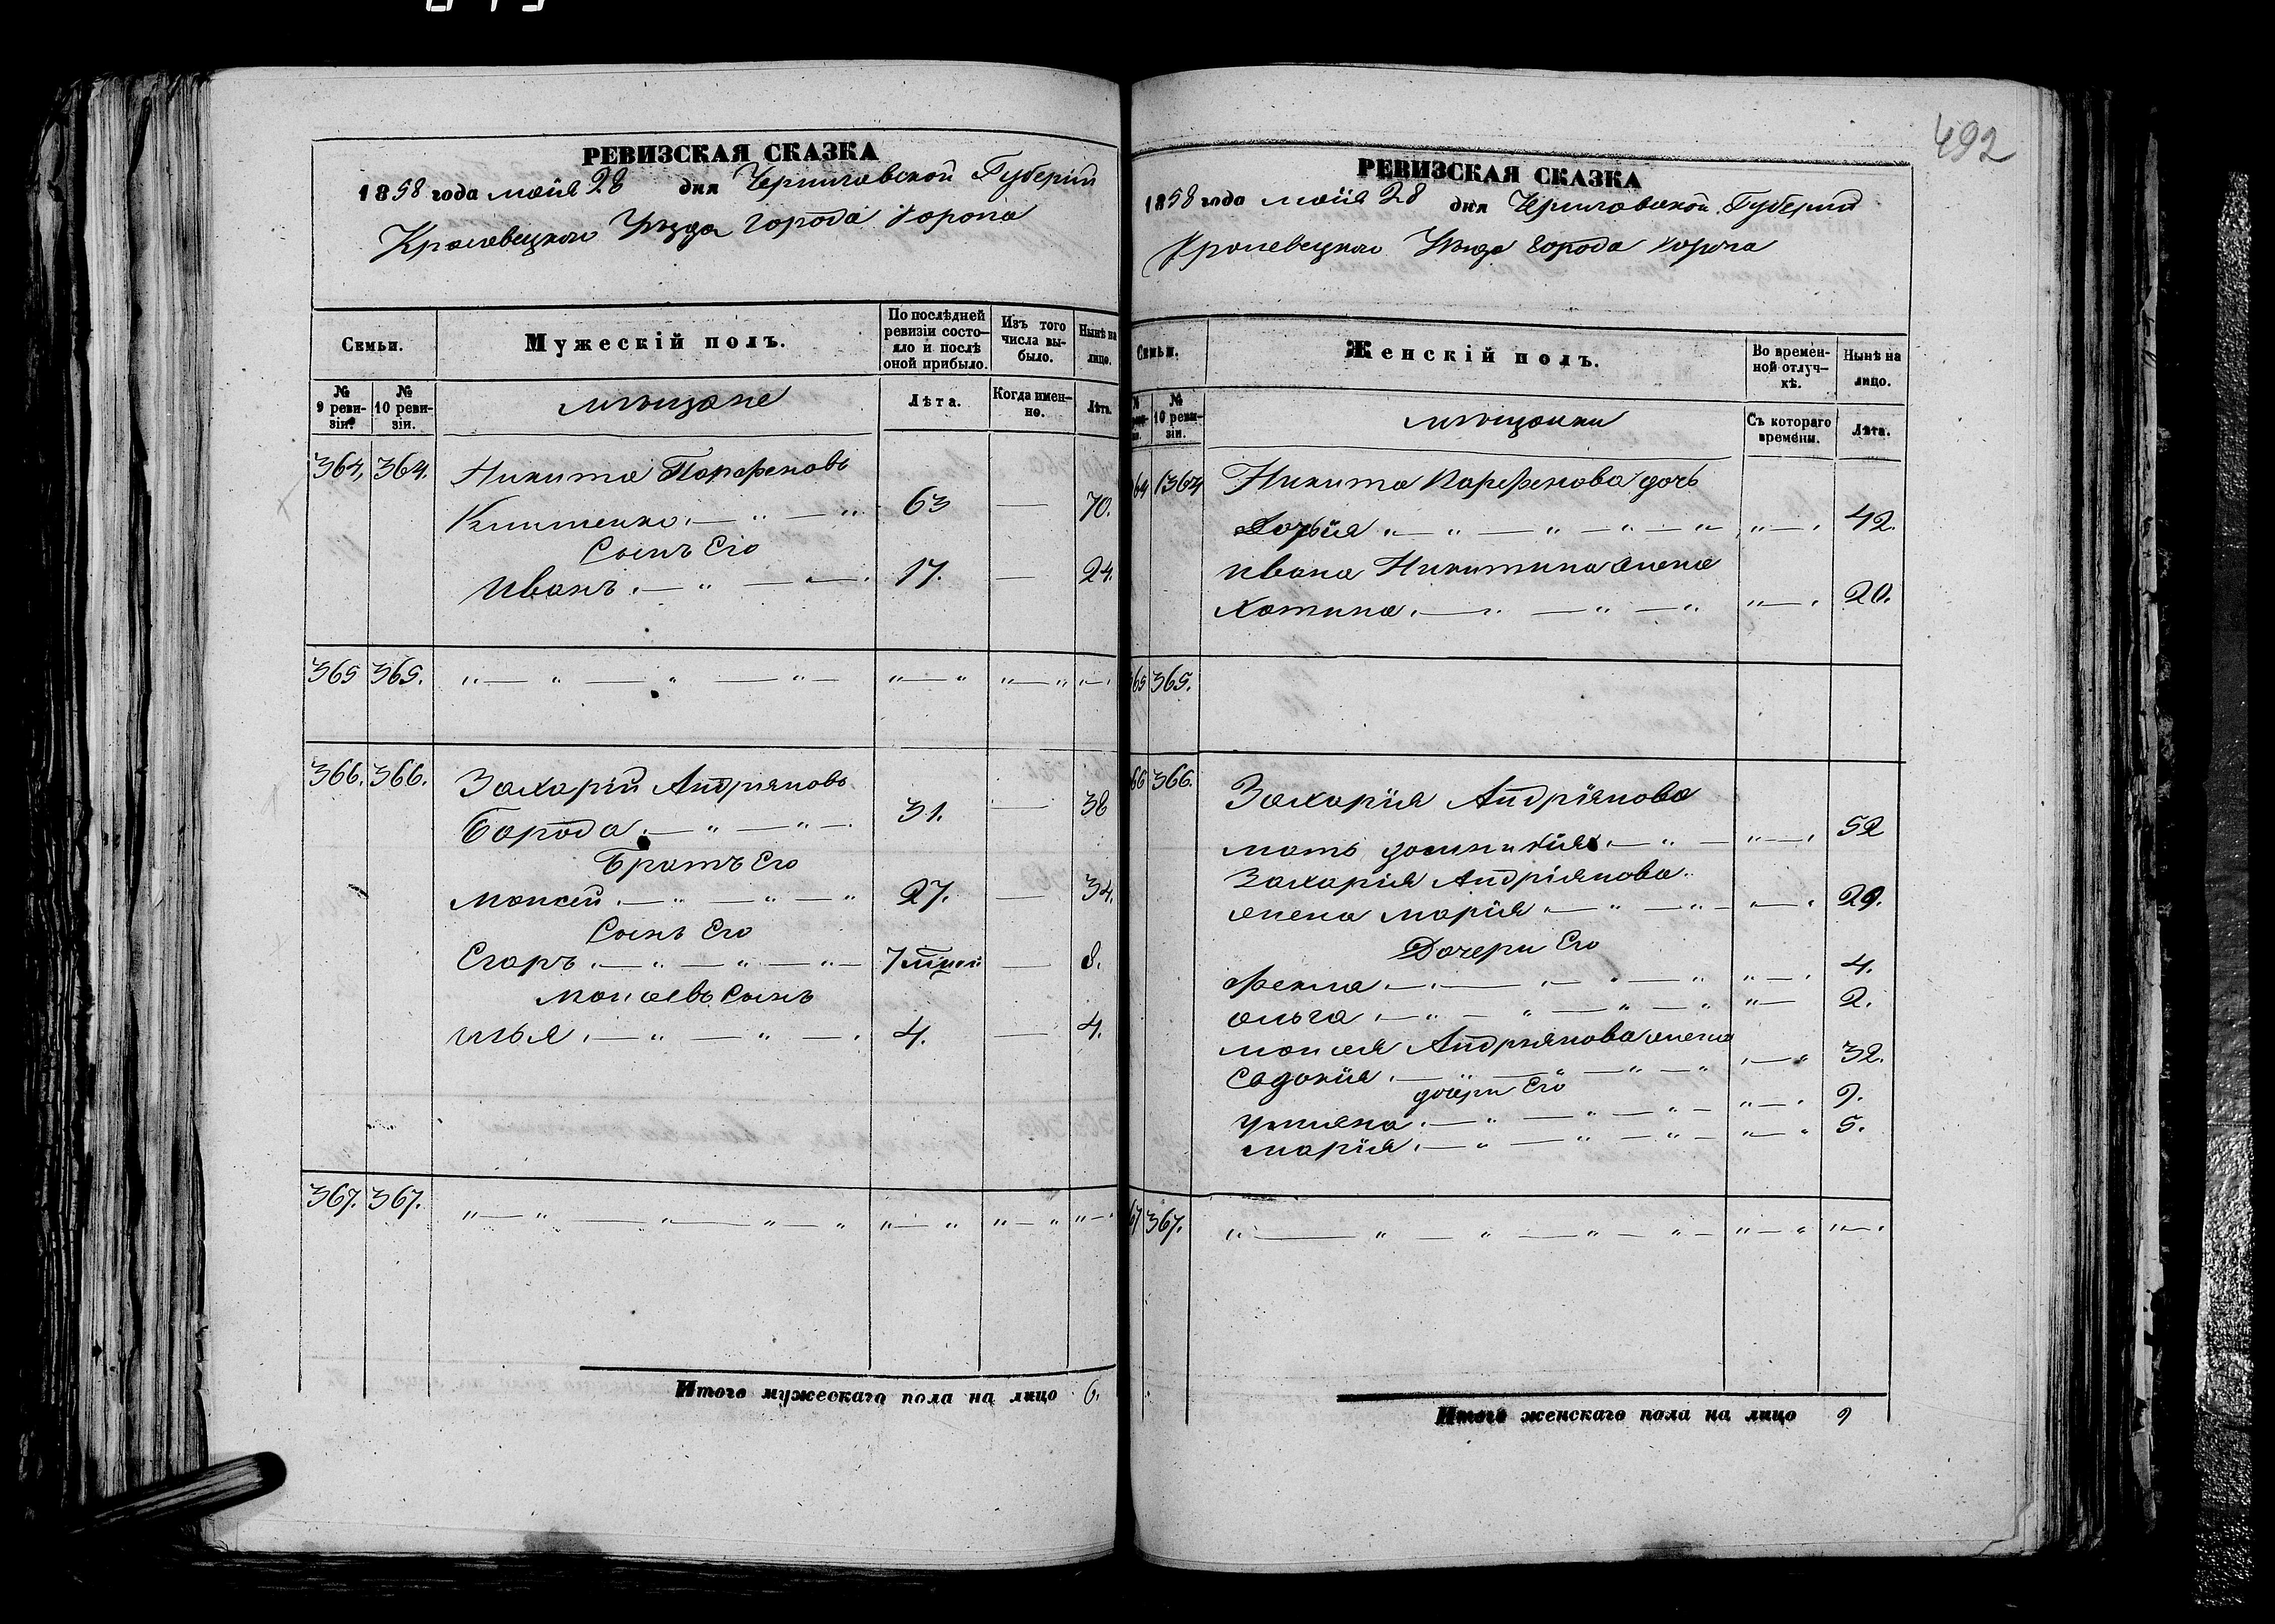 РЕВИЗСКАЯ СКАЗКА
1858 года мая 28 дня Черниговской Губерніи
Кролевецкого Уѣзда города Коропа
Семьи.
Мужескій полъ.
По послѣдней ревизіи состо-
яло и послѣ оной прибыло.
Изъ того числа вы-
было.
Нынѣ на лицо.
№ 9 реви-
зіи.
№ 10 реви-
зіи.
мѣщане
Лѣта.
Когда имен-
но.
Лѣта.
364, 364. Никита Парфеновъ
Клименко 63 — 70.
Сынъ Его
Иванъ 17. — 24.
365 365.
366. 366. Захарій Андріяновъ
Борода 31. — 38
Братъ Его
Моисей 27. — 34.
Сынъ Его
Егоръ 7 — 8.
Моисеевъ Сынъ
Илья 4. — 4.
367. 367.
Итого мужескаго пола на лицо 6.
492
РЕВИЗСКАЯ СКАЗКА
1858 года мая 28 дня Черниговской Губерніи
Кролевецкого Уѣзда города Коропа
Семьи.
Женскій полъ.
Во времен-
ной отлуч-
кѣ.
Нынѣ на лицо.
№ 10 реви-
зіи.
мѣщанки
Съ котораго времени.
Лѣта.
64 364 Никита Парфенова дочь
42.
Ивана Никитина жена
20.
65 365.
66 366. Захарія Андріянова
мать 52
Захарія Андріянова
жена Марія 29.
Дочери Его
Фекла 4.
Ольга 2.
Моисея Андріянова жена
32.
дочери Его
Ульяна 9.
Марія 5.
67 367.
Итого женскаго пола на лицо 9